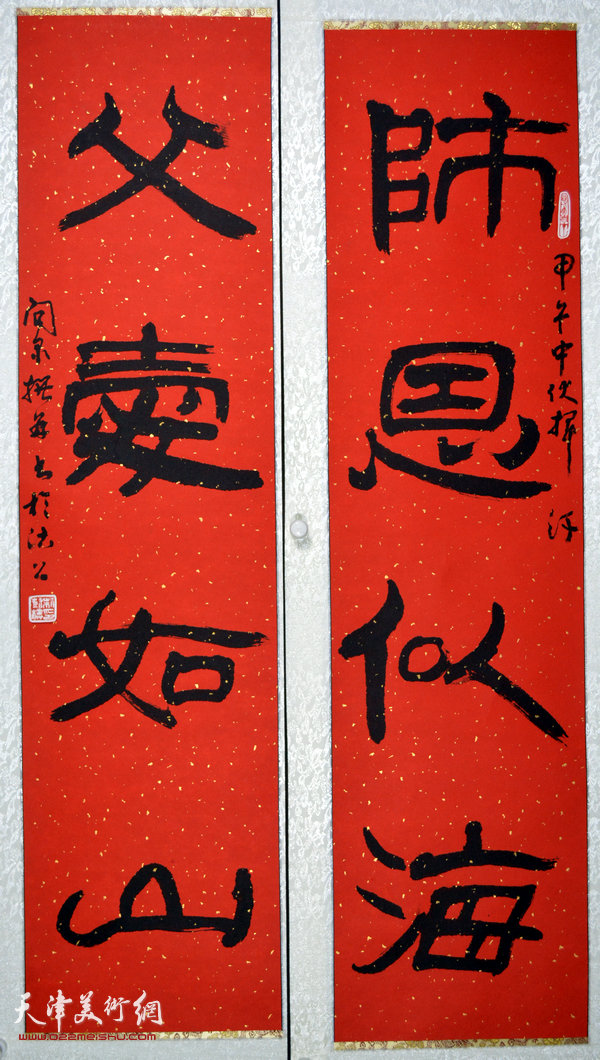 師恩似海
甲午中伏揮汗
父愛如山
問泉撰並書於沽上
天津美術網
www.022meishu.com